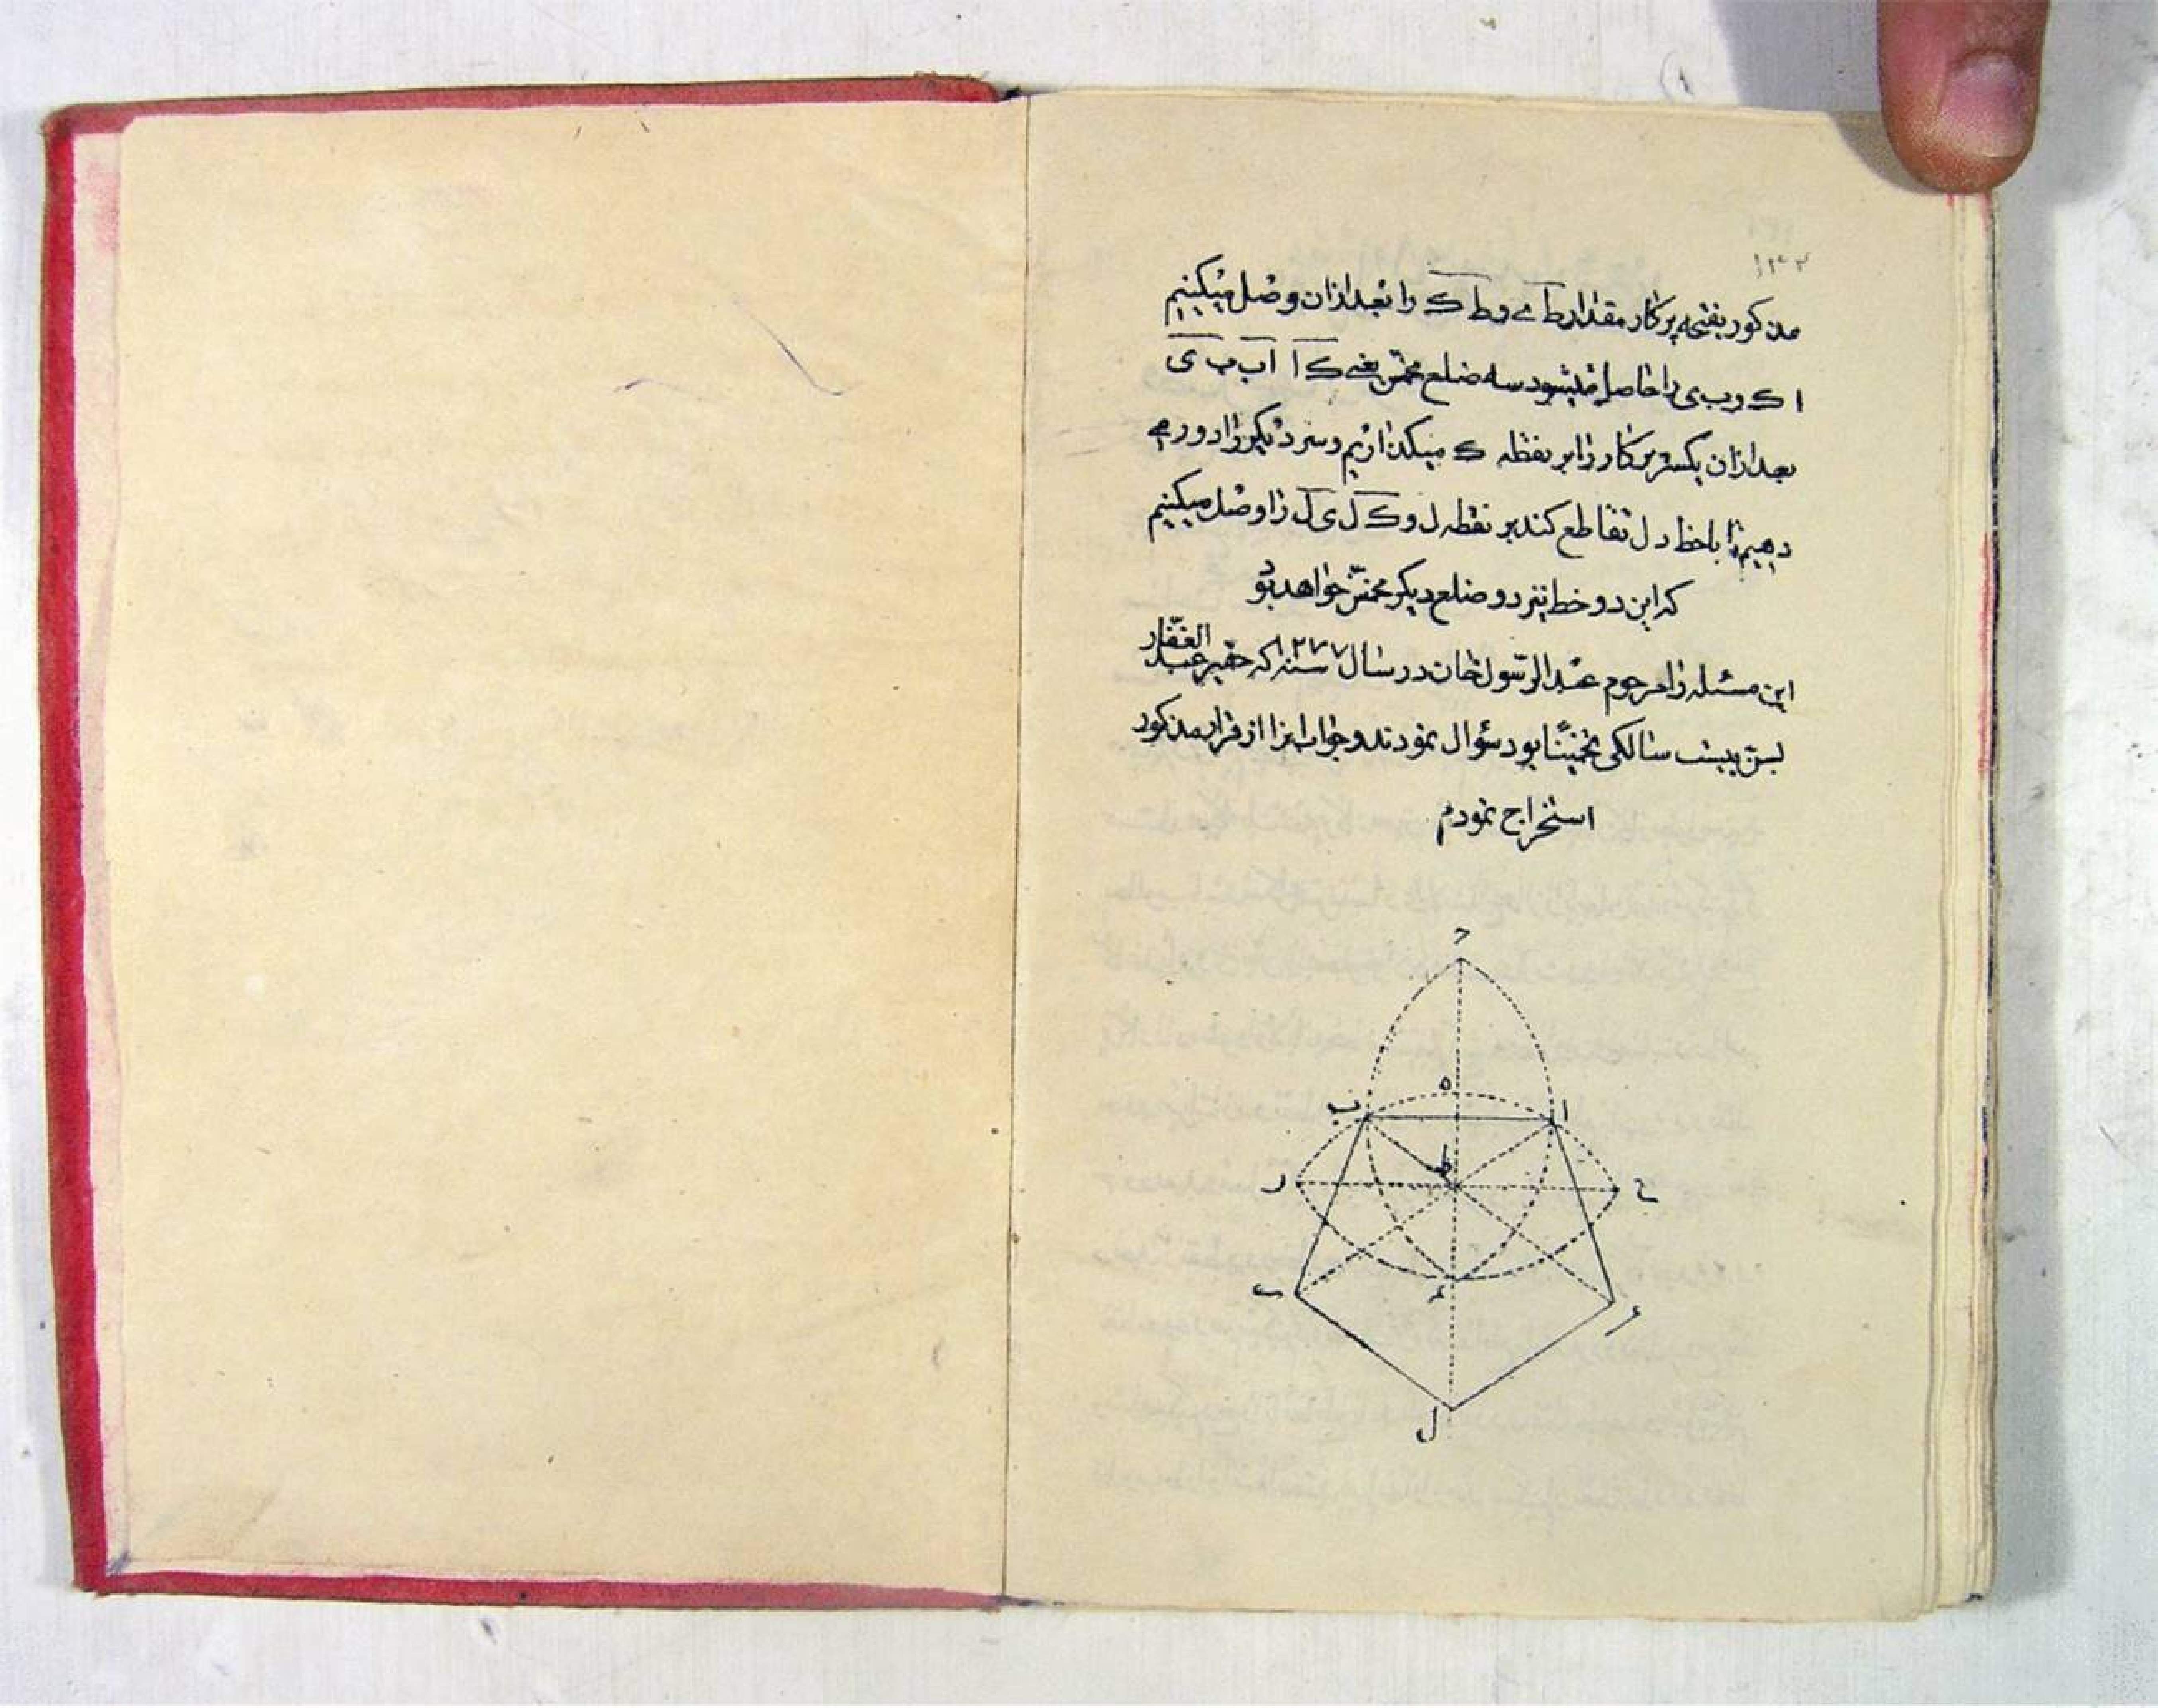 ۱۳۲
مذکور بفتحه پرکار مقدار ط ے و ط ک را بعد ازان وصل میکنیم
ا ک و ب ی را حاصل میشود سه ضلع مخمس یعنے ک ا ا ب ب ی
بعد ازان یکسر پرکار را بر نقطه ک میکذاریم و سر دیکر را دور مے
دهیم تا با خط د ل تقاطع کند بر نقطه ل و ک ل ی ل را وصل میکنیم
که این دو خط نیز دو ضلع دیکر مخمس خواهد بود
این مسئله را مرحوم عبد الرسول خان در سال ۱۲۷۷ سنه که حقیر عبد الغفار
بسن بیست سالکی تخمینًا بود سؤال نمودند و جواب اینرا از قرار مذکور
استخراج نمودم
ه
ب
ا
ط
ر
ح
م
ل